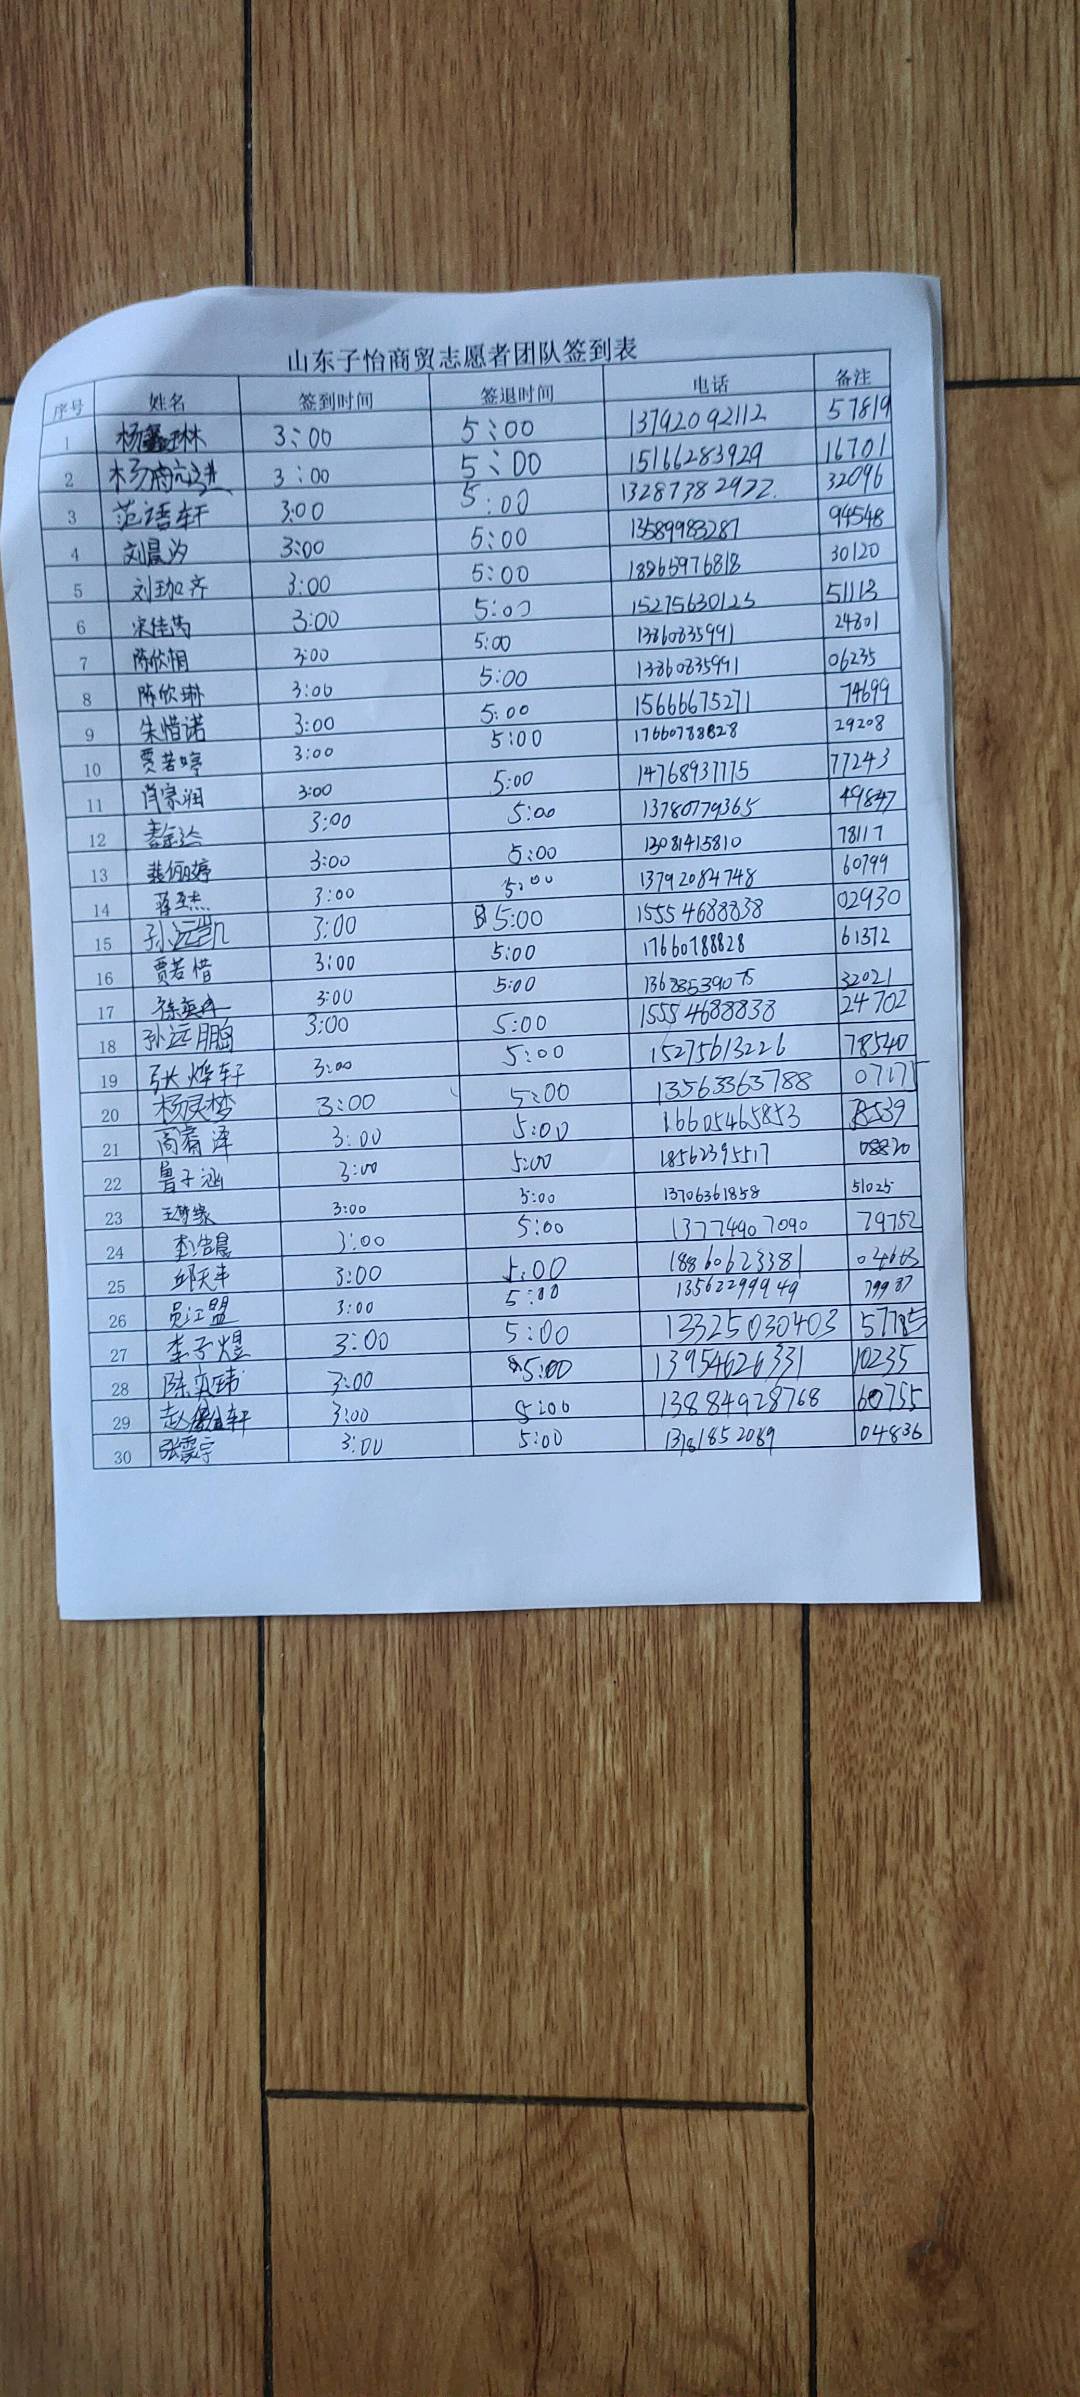 山东子怡商贸志愿者团队签到表
序号 姓名 签到时间 签退时间 电话 备注
1 杨鑫琳 3:00 5:00 13792092112 57819
2 杨 3:00 5:00 15166283929 16701
3 范语轩 3:00 5:00 13287382922 32096
4 刘晨汐 3:00 5:00 13589983287 94548
5 刘珈齐 3:00 5:00 18265976818 30120
6 宋佳芮 3:00 5:00 15275630123 51113
7 陈欣桐 3:00 5:00 13860835991 24801
8 陈欣琳 3:00 5:00 13860835991 06235
9 朱惜诺 3:00 5:00 15666675271 74699
10 贾若婷 3:00 5:00 17660788828 29208
11 肖宗润 3:00 5:00 14768937775 77243
12 3:00 5:00 13780779365 49847
13 裴俪婷 3:00 5:00 13081415810 78117
14 蒋圣杰 3:00 5:00 13792084748 60799
15 孙远凯 3:00 5:00 15554688838 02930
16 贾若惜 3:00 5:00 17660788828 61372
17 3:00 5:00 13688539075 32021
18 孙远鹏 3:00 5:00 15554688838 24702
19 张烨轩 3:00 5:00 15275613226 78540
20 杨灵梦 3:00 5:00 13563363788 07175
21 周睿泽 3:00 5:00 16605465853 78539
22 鲁子涵 3:00 5:00 18562395517 08820
23 王梦缘 3:00 5:00 13706361858 51025
24 李浩晨 3:00 5:00 13774907090 79752
25 邱天丰 3:00 5:00 18860623381
26 员江盟 3:00 5:00 13562299949 79987
27 李子煜 3:00 5:00 13325030403 57785
28 陈奕玮 3:00 5:00 13954626331 10235
29 赵轩 3:00 5:00 13884928768 60755
30 张震宇 3:00 5:00 13781852089 04836